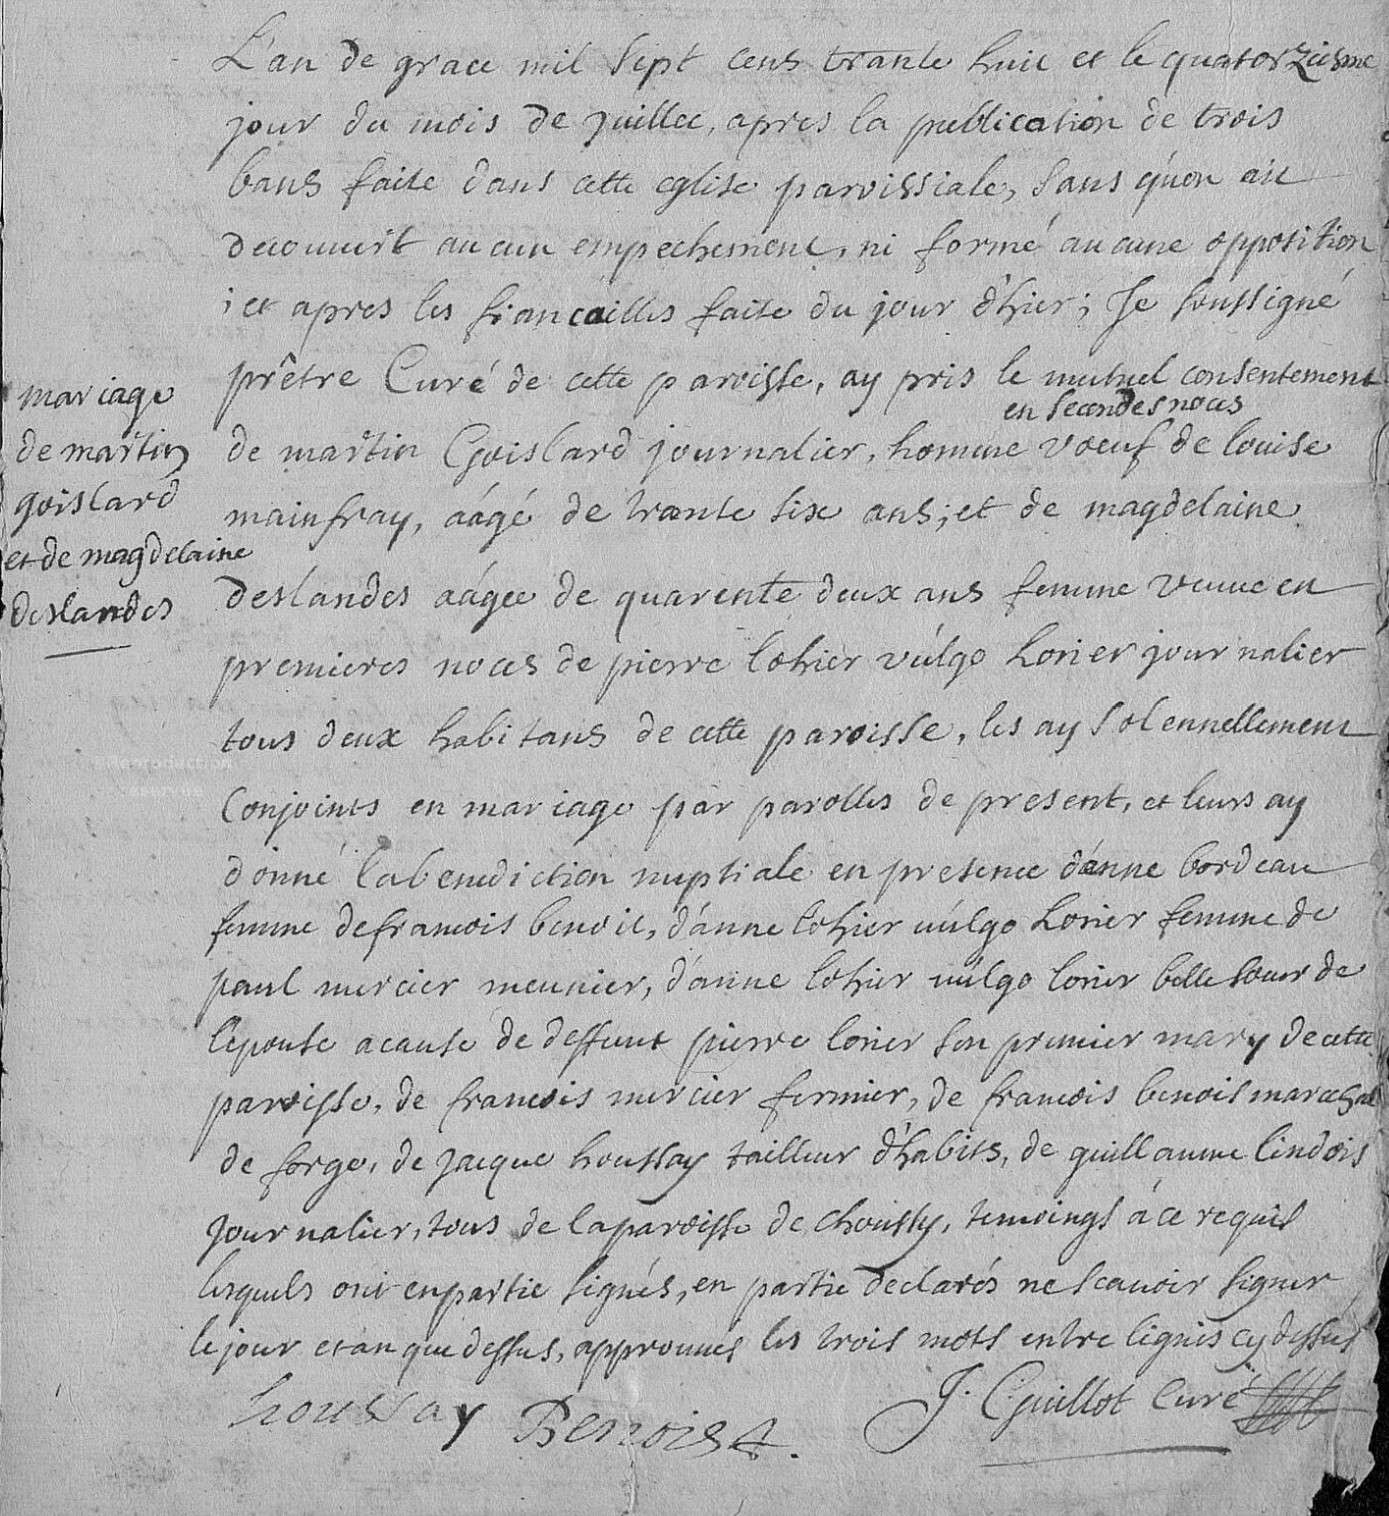 L'an de grace mil sept cens trante huit et le quatorziesme
jour du mois de juillet, apres la publication de trois
bans faite dans cette eglise paroissiale, sans qu'on ait
decouuert aucun empechement, ni formé aucune opposition
; et apres les fiancailles faite du jour d'hier; Je soussigné
prêtre Curé de cette paroisse, ay pris le mutuel consentement
en secondes noces
de martin Goislard journalier, homme voeuf de louise
mainfray, aágé de trante six ans; et de magdelaine
deslandes aágée de quarente deux ans femme veuue en
premieres noces de pierre lohier vúlgo horier journalier
tous deux habitans de cette paroisse, les ay solennellement
Conjoints en mariage par parolles de present, et leurs ay
donné la benediction nuptiale en presence d'anne bordeau
femme de francois benoit, d'anne lohier uúlgo horier femme de
paul mercier meunier, d'anne lohier uúlgo lorier belle soeur de
l'epouse a cause de deffunt pierre lorier son premier mary de cette
paroisse, de francois mercier fermier, de francois benoist marechal
de forge, de jacque houssay tailleur d'habits, de guillaume lindois
journalier, tous de la paroisse de choussy, temoings á ce requis
lesquels ont en partie signés, en partie declarés ne scauoir signer
le jour et an que dessus, approuués les trois mots entre lignes cy dessus
houssay Benoist. J. Guillot curé
mariage
de martin
goislard
et de magdelaine
deslandes